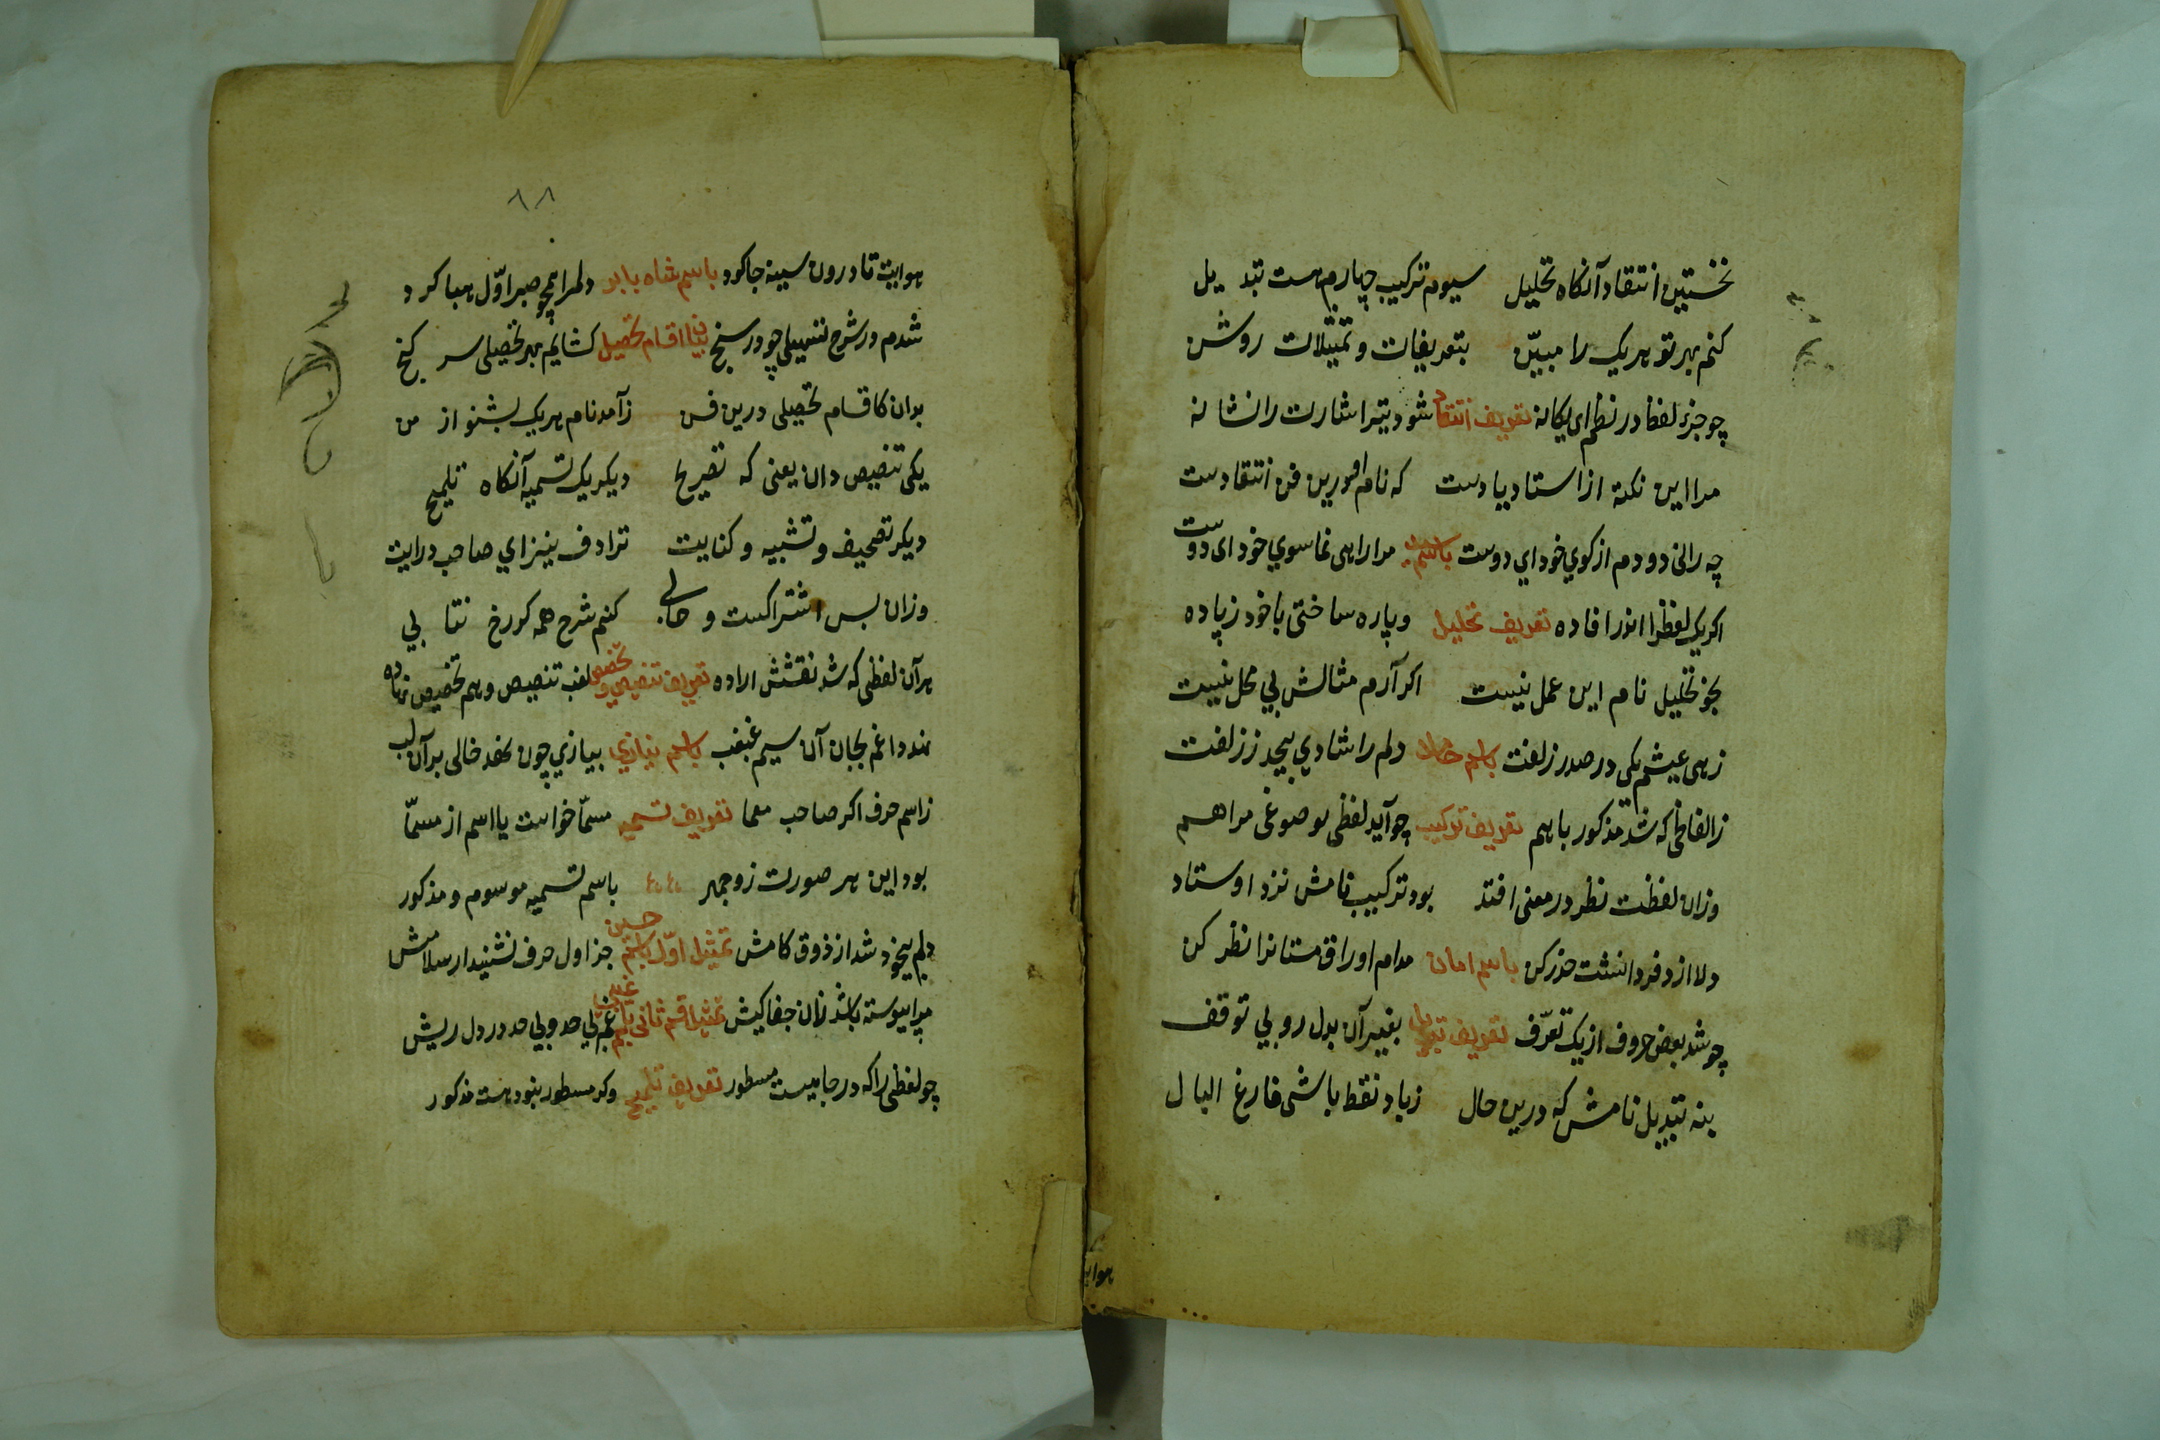 نخستین انتقاد آنکاه تحلیل سیوم ترکیب چهارم هست تبدیل
کنم بهر تو هریک را مبیّن بتعریفات و تمثیلات روشن
چو جزء لفظ در نظم ای یکانه تعریف انتقاد شود تیر اشارت را نشانه
مرا این نکته از استاد یادست که نام او درین فن انتقادست
چه رانی دو دم از کوی خود ای دوست باسم مرا راهی نما سوی خود ای دوست
اکر یک لفظ را اندر افاده تعریف تحلیل دو پاره ساختی یا خود زیاده
بجز تحلیل نام این عمل نیست اکر آرم مثالش بی محل نیست
زهی عیشم یکی در صدر زلفت باسم دلم را شادی بیحد ز زلفت
ز الفاظی که شد مذکور باهم تعریف ترکیب چو آید لفظی مراهم
وزان لفظت نظر در معنی افتد بود ترکیب نامش نزد اوستاد
دلا از دفتر دانشت حذر کن باسم امان مدام اوراق مستانرا نظر کن
چو شد بعض حروف از یک تعرّف تعریف تبدیل بغیر آن بدل رو بی توقف
بنه تبدیل نامش که درین حال زیاد نقط باشی فارغ البال
هوایت
۸۸
هوایت تا درون سینه جا کرد باسم شاه بابر دلم را همچو صبر اوّل هبا کرد
شدم در شرح تسهیلی چو در سنج بیان اقسام تحصیل کشایم بهر تحصیلی سر کنج
بدان کاقسام تحصیلی درین فن ز آمد نام هریک بشنو از من
یکی تنصیص دان یعنی که تصریح دیکر یک تسمیه آنکاه تلمیح
دیکر تصحیف و تشبیه و کنایت ترادف نیز ای صاحب درایت
وزان بس اشتراکست و حسابی کنم شرح همه کر رخ نتابی
هر آن لفظی که شد نقشش اراده تعریف تنصیص و تخصیص لقب تنصیص و هم تخصیص نهاده
نهد داغم بجان آن سیم غبغب باسم نیازی بیازی چون نهد خالی بر آن لب
ز اسم حرف اکر صاحب معما تعریف تسمیه مسمّا خواست یا اسم از مسمّا
بود این هر صورت ز وجهر باسم تسمیه موسوم و مذکور
دلم بیخود شد از ذوق کامش تمثیل اوّل باسم حسین جز اول حرف نشنید از سلامش
مرا پیوسته باشد زان جفاکیش تمثیل قسم ثانی باسم غم بی حد و بی حد در دل ریش
چو لفظی را که در جاییست مسطور تعریف تلمیح وکر مسطور نبود هست مذکور